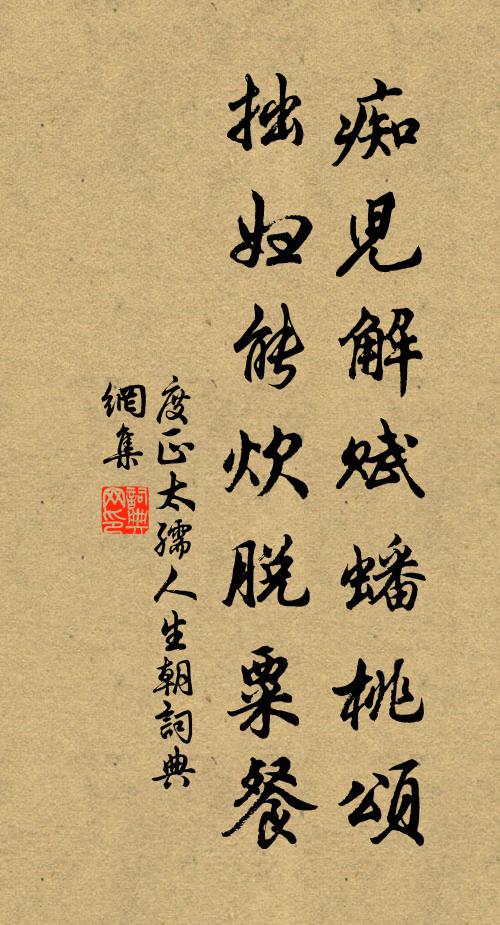 痴児解赋蟠桃頌
拙妇能炊脱粟餐
度正太孺人生朝詞典
網集
詞典
网印